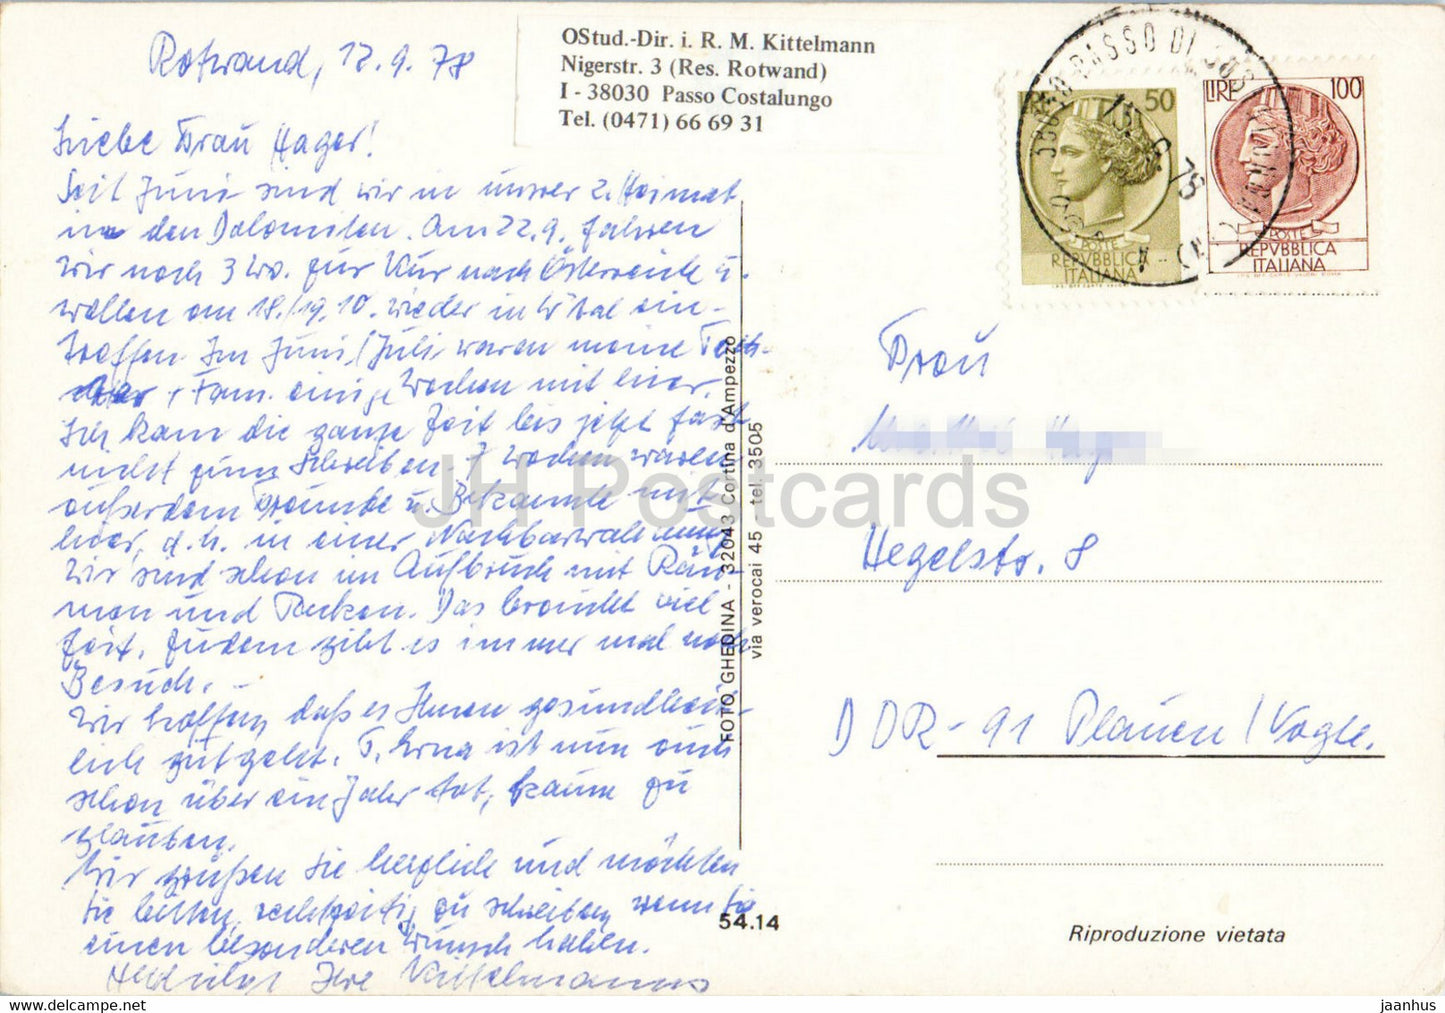 Rotwand, 12.9.78
OStud.-Dir. i. R. M. Kittelmann
Nigerstr. 3 (Res. Rotwand)
I - 38030 Passo Costalungo
Tel. (0471) 66 69 31
LIRE 50
POSTE
REPVBBLICA
ITALIANA
LIRE 100
POSTE
REPVBBLICA
ITALIANA
Liebe Frau Hager!
Seit Juni sind wir in unsrer 2. Heimat
in den Dolomiten. Am 22.9. fahren
wir noch 3 Wo. zur Kur nach Österreich u.
wollen am 18./19.10. wieder in W'tal ein-
treffen. Im Juni/Juli waren meine
Fam. einige Wochen mit hier.
Ich kam die ganze Zeit bis jetzt fast
nicht zum Schreiben. 7 Wochen waren
außerdem Freunde u. Bekannte mit
hier, d.h. in einer Nachbarwohnung.
Wir sind schon im Aufbruch mit Räu-
men und Packen. Das braucht viel
Zeit. Zudem gibt es immer mal noch
Besuch.
Wir hoffen, daß es Ihnen gesundheit-
lich gut geht. T. Erna ist nun auch
schon über ein Jahr tot, kaum zu
glauben.
Wir grüßen Sie herzlich und möchten
Sie bitten, rechtzeitig zu schreiben, wenn Sie
einen besonderen Wunsch haben.
Herzlichst Ihre Kittelmanns
FOTO GHEDINA - 32043 Cortina d'Ampezzo
via verocai 45 - tel. 3505
54.14
Frau
Hegelstr. 8
DDR-91 Plauen/Vogtl.
Riproduzione vietata
JH Postcards
jaanhus